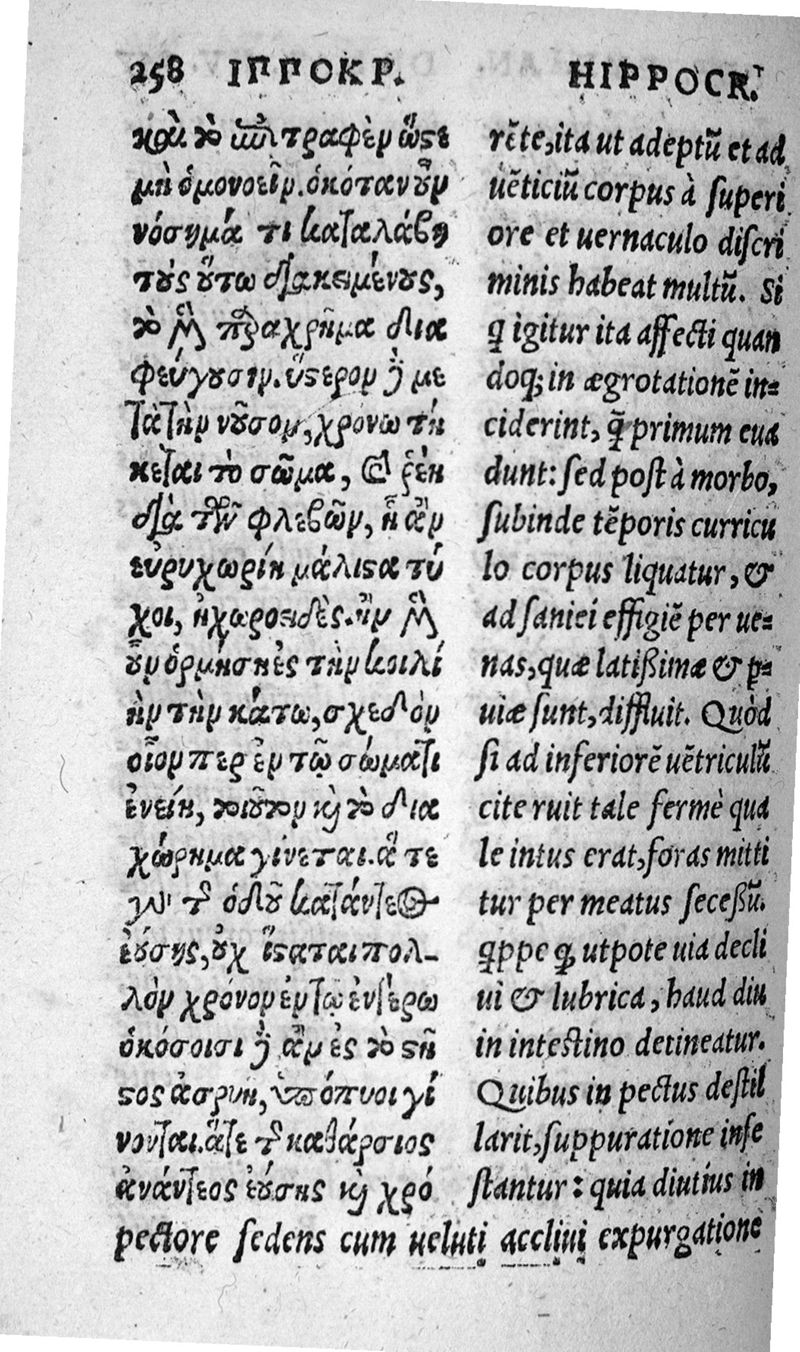 258 ΙΠΠΟΚΡ.
HIPPOCR.
καὶ τὸ ἐπιτραφὲν ὥστε
μὴ ὁμονοεῖν. ὁκόταν οὖν
νόσημά τι καταλάβῃ
τοὺς οὕτω διακειμένους,
τὸ μὲν παραχρῆμα δια
φεύγουσιν. ὕστερον δὲ με
τὰ τὴν νοῦσον, χρόνω τή
κεται τὸ σῶμα, καὶ ῥέη
διὰ τῶν φλεβῶν, ᾗ ἂν
εὐρυχωρίη μάλιστα τύ
χοι, ἰχωροειδὲς. ἢν μὲν
οὖν ὁρμήση ἐς τὴν κοιλί
ὴν τὴν κάτω, σχεδὸν
οἷον περ ἐν τῷ σώματι
ἐνείη, τοιοῦτον καὶ τὸ δια
χώρημα γίνεται. ἅ τε
γὰρ τῆς ὁδοῦ κατάντεος
ἐούσης, οὐχ ἵσταται πολ-
λὸν χρόνον ἐν τῷ ἐντέρω
ὁκόσοισι δὲ ἂν ἐς τὸ στῆ
θος ἐσρυῆ, ὑπόπυοι γί
νονται. ἅτε τῆς καθάρσιος
ἀνάντεος ἐούσης καὶ χρό
rēte, ita ut adeptū et ad
uēticiū corpus à superi
ore et uernaculo discri
minis habeat multū. Si
q̄ igitur ita affecti quan
doq; in ægrotationē in-
ciderint, q̄ primum eua
dunt: sed post à morbo,
subinde tēporis curricu
lo corpus liquatur, &
ad saniei effigiē per ue-
nas, quæ latißimæ & p-
uiæ sunt, diffluit. Quòd
si ad inferiorē uētriculū
cite ruit tale fermè qua
le intus erat, foras mitti
tur per meatus seceßū.
qppe q̄, utpote uia decli
ui & lubrica, haud diu
in intestino detineatur.
Quibus in pectus destil
larit, suppuratione infe
stantur: quia diutius in
pectore sedens cum ueluti accliui expurgatione